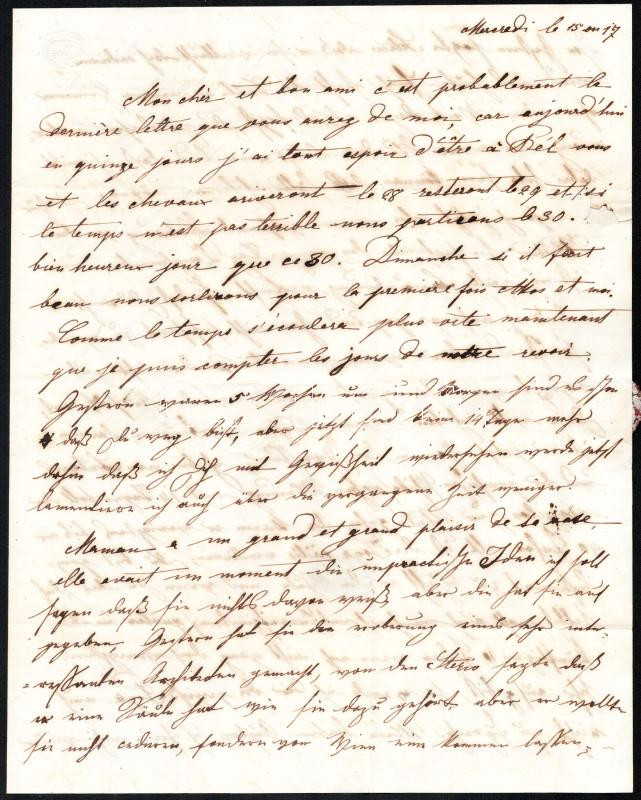 Mercredi le 15 en 17
Mon cher et bon ami c'est probablement le
dernière lettre que vous aurez de moi, car aujourd'hui
en quinze jours j'ai tout espoir d'être à vous
et les chevaux ariveront le 28 resteront le 29 et si
le temps n'est pas terrible nous partirons le 30.
bien heureux jour que ce 30. Dimanche si il fait
beau nous sortirons pour la première fois et moi.
Comme le temps s'écoulera plus vite maintenant
que je puis compter les jours de notre revoir.
Gestern waren 5 Wochen um und morgen sind es
daß Du weg bist, aber jetzt sind kaum 14 Tage mehr
dahin daß ich Dich mit Gewißheit wiedersehen werde jetzt
lamentiere ich auch über die vergangene Zeit weniger.
Maman a un grand et grand plaisir de
elle avait un moment die unpractische Ideen ich soll
sagen daß sie nichts davon weiß aber die hat sie auf
gegeben, Gestern hat sie die eroberung eines sehr inte-
=ressanten Architecten gemacht, von den sagte daß
er eine Säule hat wie sie dazu gehört, aber er wollte
sie nicht cediren, sondern von Wien eine kommen lassen,